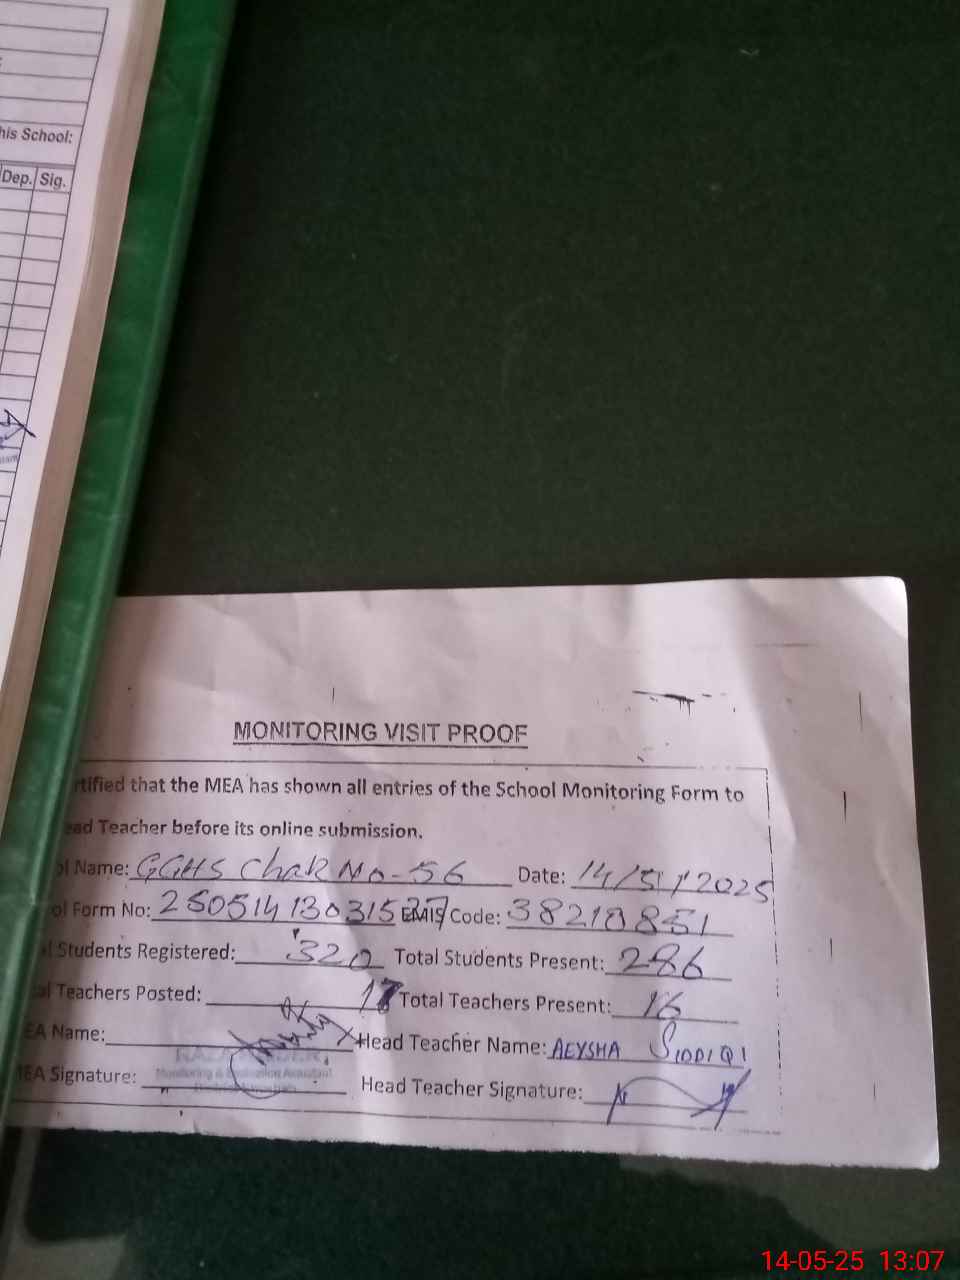 his School:
Dep. Sig.
MONITORING VISIT PROOF
rtified that the MEA has shown all entries of the School Monitoring Form to
ead Teacher before its online submission.
ol Name: GGHS Chak No-56 Date: 14/5/2025
ol Form No: EMIS Code: 38210851
l Students Registered: 320 Total Students Present: 286
al Teachers Posted: 17 Total Teachers Present: 16
EA Name: Head Teacher Name: AEYSHA SIDDIQI
MEA Signature: Monitoring & Evaluation Assistant Head Teacher Signature:
14-05-25 13:07